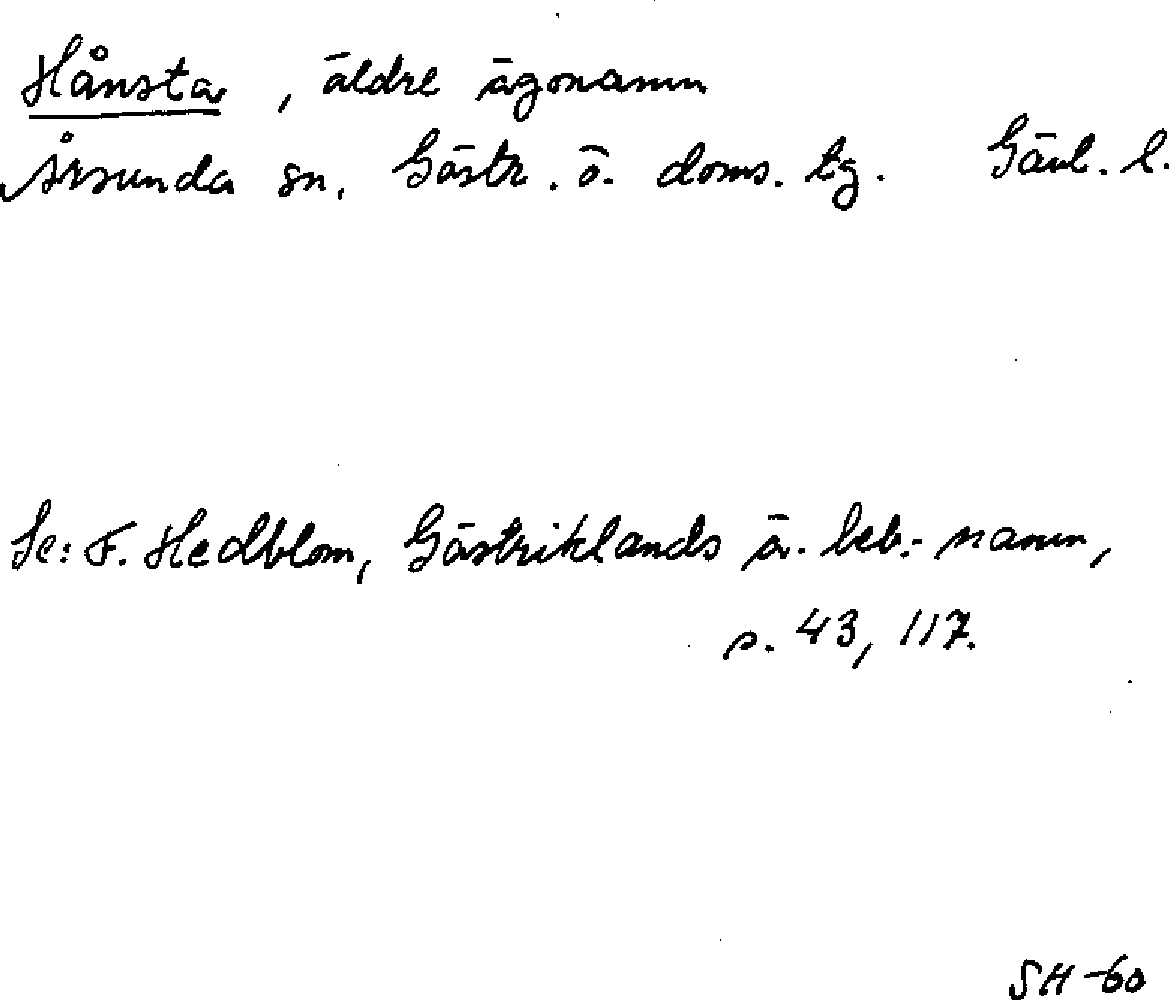 Hånsta, äldre ägonamn
Årsunda sn. Gästr. ö. doms. tg. Gävl. l.
Se: F. Hedblom, Gästriklands ä. beb.-namn,
s. 43, 117.
SH -60